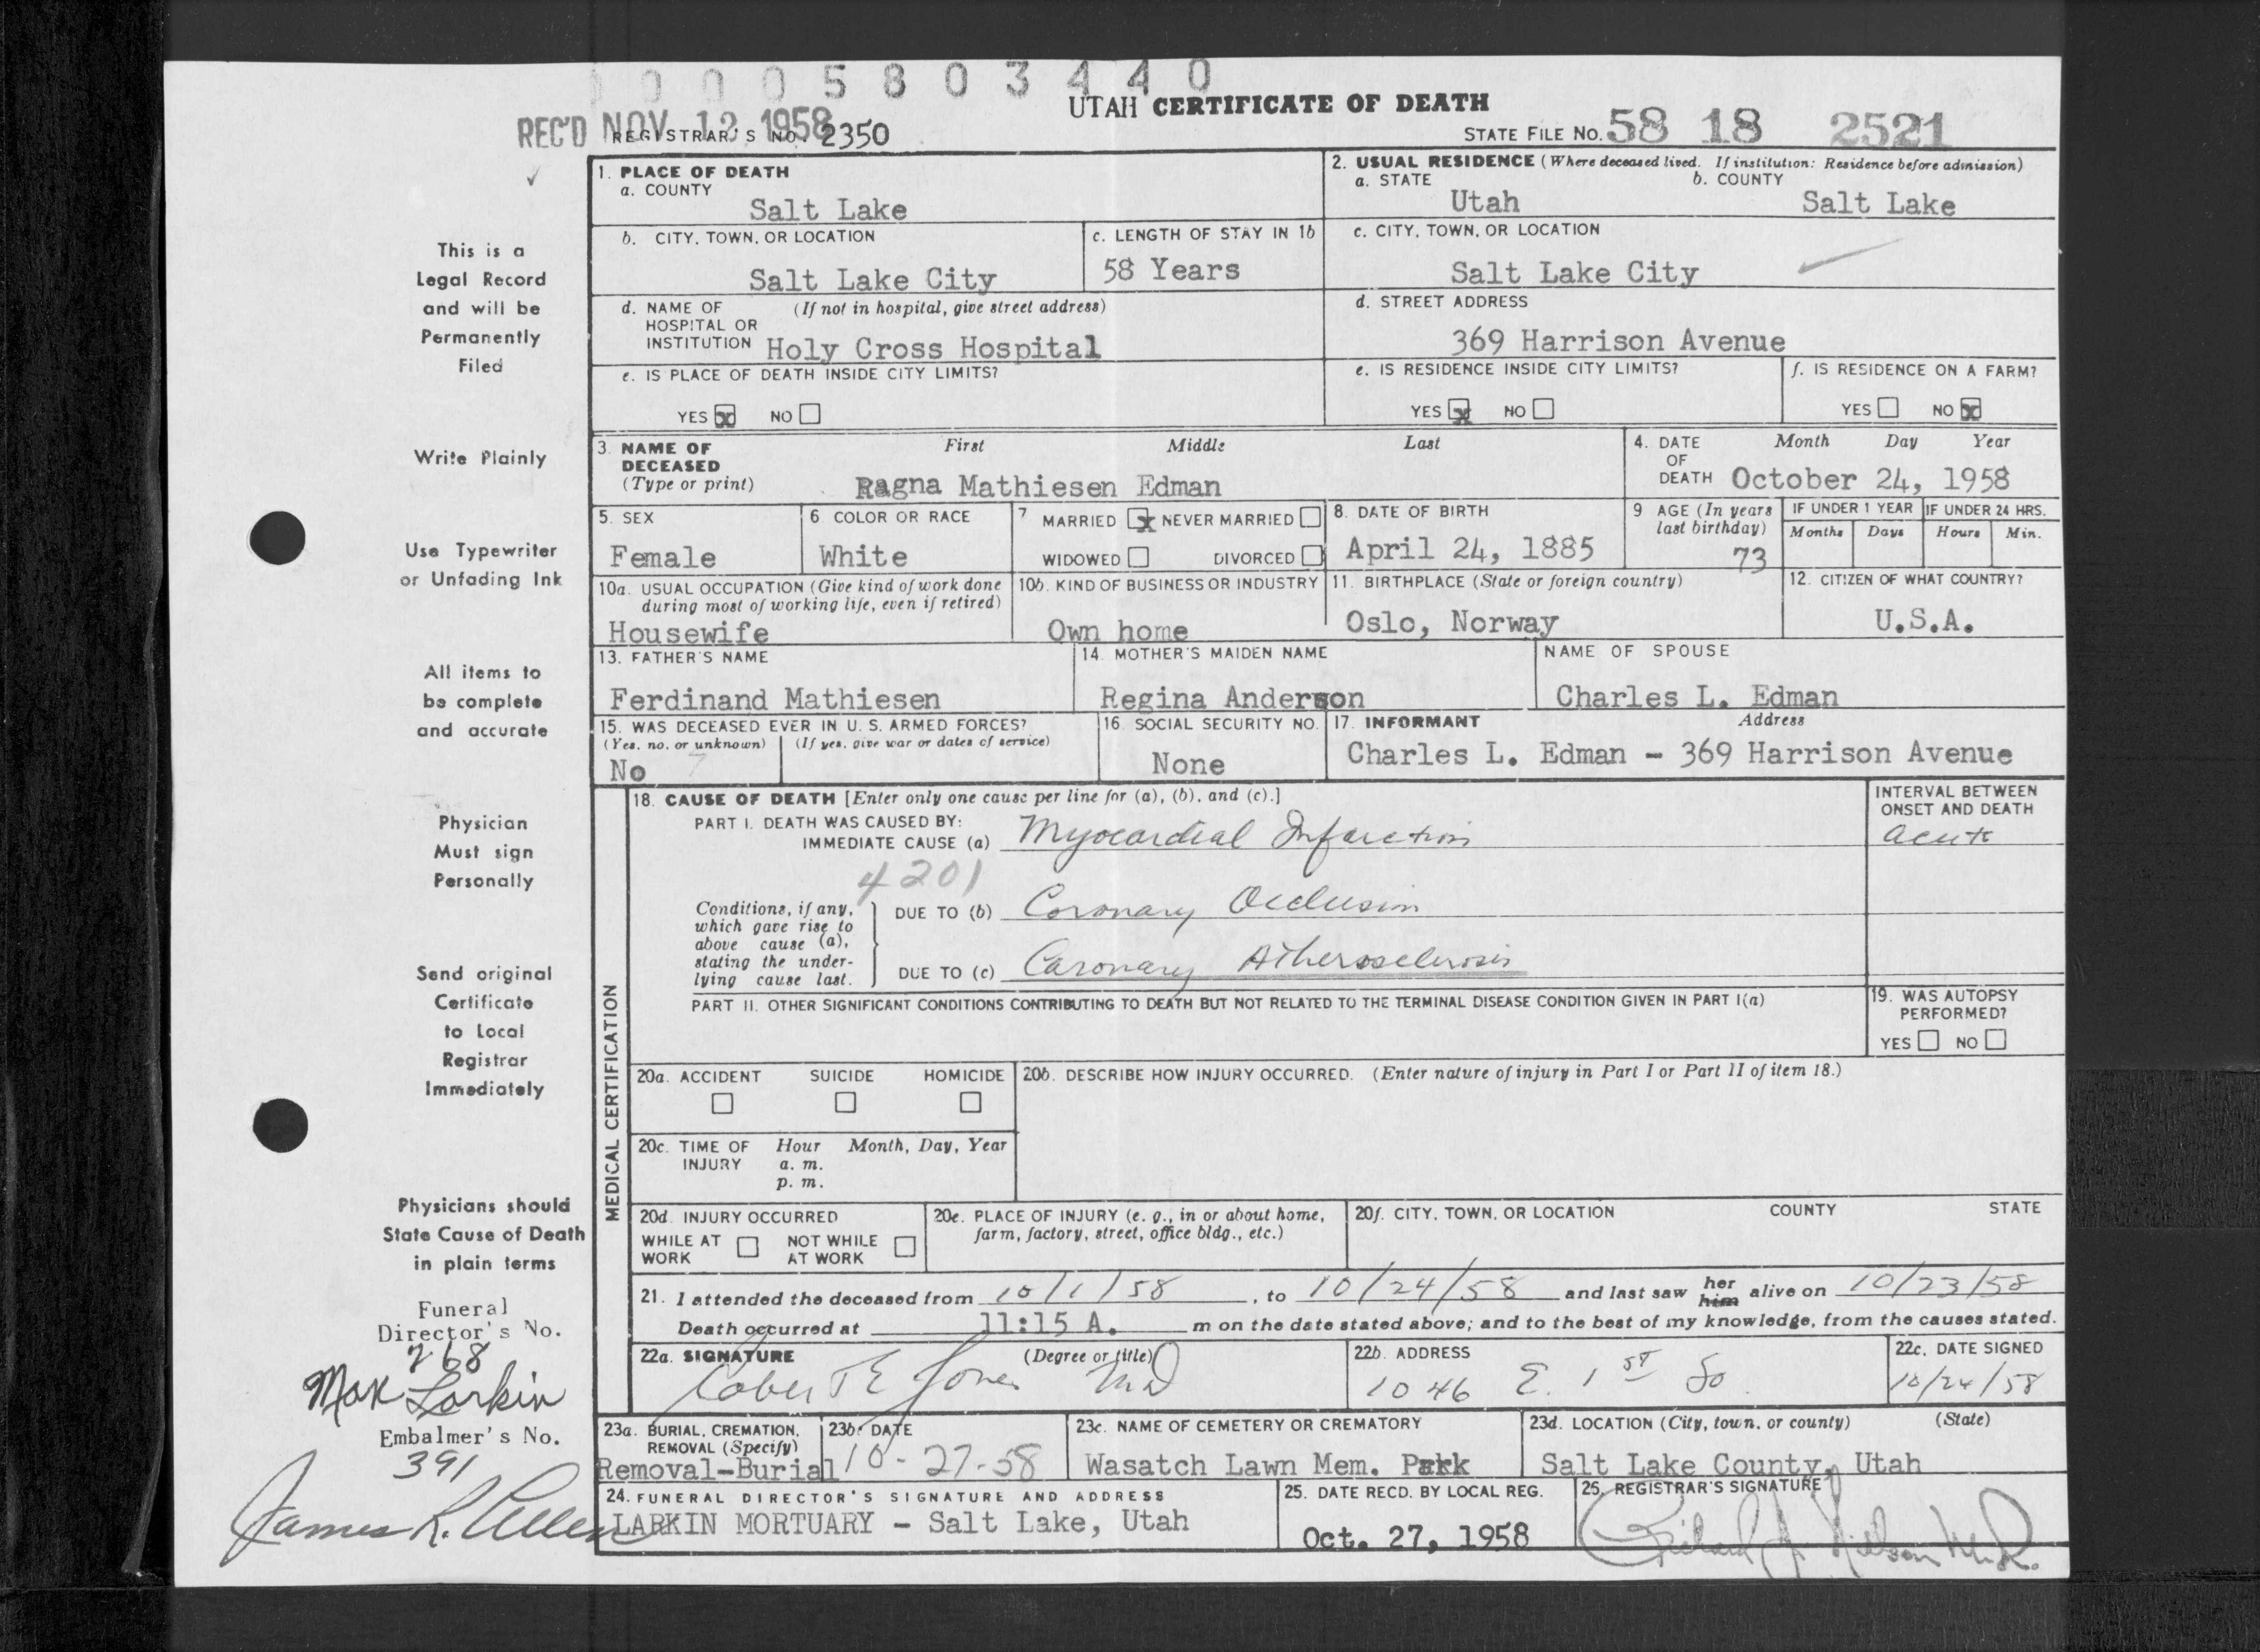 0 0 0 5 8 0 3 4 4 0
UTAH CERTIFICATE OF DEATH
REC'D NOV 12 1958
REGISTRAR'S NO. 2350
STATE FILE NO. 58 18 2521
1. PLACE OF DEATH
a. COUNTY
Salt Lake
2. USUAL RESIDENCE (Where deceased lived. If institution: Residence before admission)
a. STATE b. COUNTY
Utah Salt Lake
b. CITY, TOWN, OR LOCATION
Salt Lake City
c. LENGTH OF STAY IN 1b
58 Years
c. CITY, TOWN, OR LOCATION
Salt Lake City
d. NAME OF (If not in hospital, give street address)
HOSPITAL OR
INSTITUTION Holy Cross Hospital
d. STREET ADDRESS
369 Harrison Avenue
e. IS PLACE OF DEATH INSIDE CITY LIMITS?
YES x NO
e. IS RESIDENCE INSIDE CITY LIMITS?
YES x NO
f. IS RESIDENCE ON A FARM?
YES NO x
3. NAME OF First Middle Last
DECEASED
(Type or print) Ragna Mathiesen Edman
4. DATE Month Day Year
OF
DEATH October 24, 1958
5. SEX
Female
6 COLOR OR RACE
White
7 MARRIED x NEVER MARRIED
WIDOWED DIVORCED
8. DATE OF BIRTH
April 24, 1885
9 AGE (In years
last birthday)
73
IF UNDER 1 YEAR IF UNDER 24 HRS.
Months Days Hours Min.
10a. USUAL OCCUPATION (Give kind of work done
during most of working life, even if retired)
Housewife
10b. KIND OF BUSINESS OR INDUSTRY
Own home
11. BIRTHPLACE (State or foreign country)
Oslo, Norway
12. CITIZEN OF WHAT COUNTRY?
U.S.A.
13. FATHER'S NAME
Ferdinand Mathiesen
14. MOTHER'S MAIDEN NAME
Regina Anderson
NAME OF SPOUSE
Charles L. Edman
15. WAS DECEASED EVER IN U. S. ARMED FORCES?
(Yes, no, or unknown) (If yes, give war or dates of service)
No
16. SOCIAL SECURITY NO.
None
17. INFORMANT Address
Charles L. Edman - 369 Harrison Avenue
MEDICAL CERTIFICATION
18. CAUSE OF DEATH [Enter only one cause per line for (a), (b), and (c).]
PART I. DEATH WAS CAUSED BY:
IMMEDIATE CAUSE (a) Myocardial Infarction
INTERVAL BETWEEN
ONSET AND DEATH
acute
4201
Conditions, if any,
which gave rise to
above cause (a),
stating the under-
lying cause last.
DUE TO (b) Coronary Occlusion
DUE TO (c) Coronary Atherosclerosis
PART II. OTHER SIGNIFICANT CONDITIONS CONTRIBUTING TO DEATH BUT NOT RELATED TO THE TERMINAL DISEASE CONDITION GIVEN IN PART I(a)
19. WAS AUTOPSY
PERFORMED?
YES NO
20a. ACCIDENT SUICIDE HOMICIDE
20b. DESCRIBE HOW INJURY OCCURRED. (Enter nature of injury in Part I or Part II of item 18.)
20c. TIME OF Hour Month, Day, Year
INJURY a. m.
p. m.
20d. INJURY OCCURRED
WHILE AT NOT WHILE
WORK AT WORK
20e. PLACE OF INJURY (e. g., in or about home,
farm, factory, street, office bldg., etc.)
20f. CITY, TOWN, OR LOCATION COUNTY STATE
21. I attended the deceased from 10/1/58, to 10/24/58 and last saw her him alive on 10/23/58
Death occurred at 11:15 A. m on the date stated above; and to the best of my knowledge, from the causes stated.
22a. SIGNATURE (Degree or title)
Jones MD
22b. ADDRESS
1046 E. 1st So
22c. DATE SIGNED
10/24/58
23a. BURIAL, CREMATION,
REMOVAL (Specify)
Removal-Burial
23b. DATE
10-27-58
23c. NAME OF CEMETERY OR CREMATORY
Wasatch Lawn Mem. Park
23d. LOCATION (City, town, or county) (State)
Salt Lake County, Utah
24. FUNERAL DIRECTOR'S SIGNATURE AND ADDRESS
LARKIN MORTUARY - Salt Lake, Utah
25. DATE RECD. BY LOCAL REG.
Oct. 27, 1958
26. REGISTRAR'S SIGNATURE
Richard A. Nielson M.D.
This is a
Legal Record
and will be
Permanently
Filed
Write Plainly
Use Typewriter
or Unfading Ink
All items to
be complete
and accurate
Physician
Must sign
Personally
Send original
Certificate
to Local
Registrar
Immediately
Physicians should
State Cause of Death
in plain terms
Funeral
Director's No.
268
Max Larkin
Embalmer's No.
391
James R. Allen